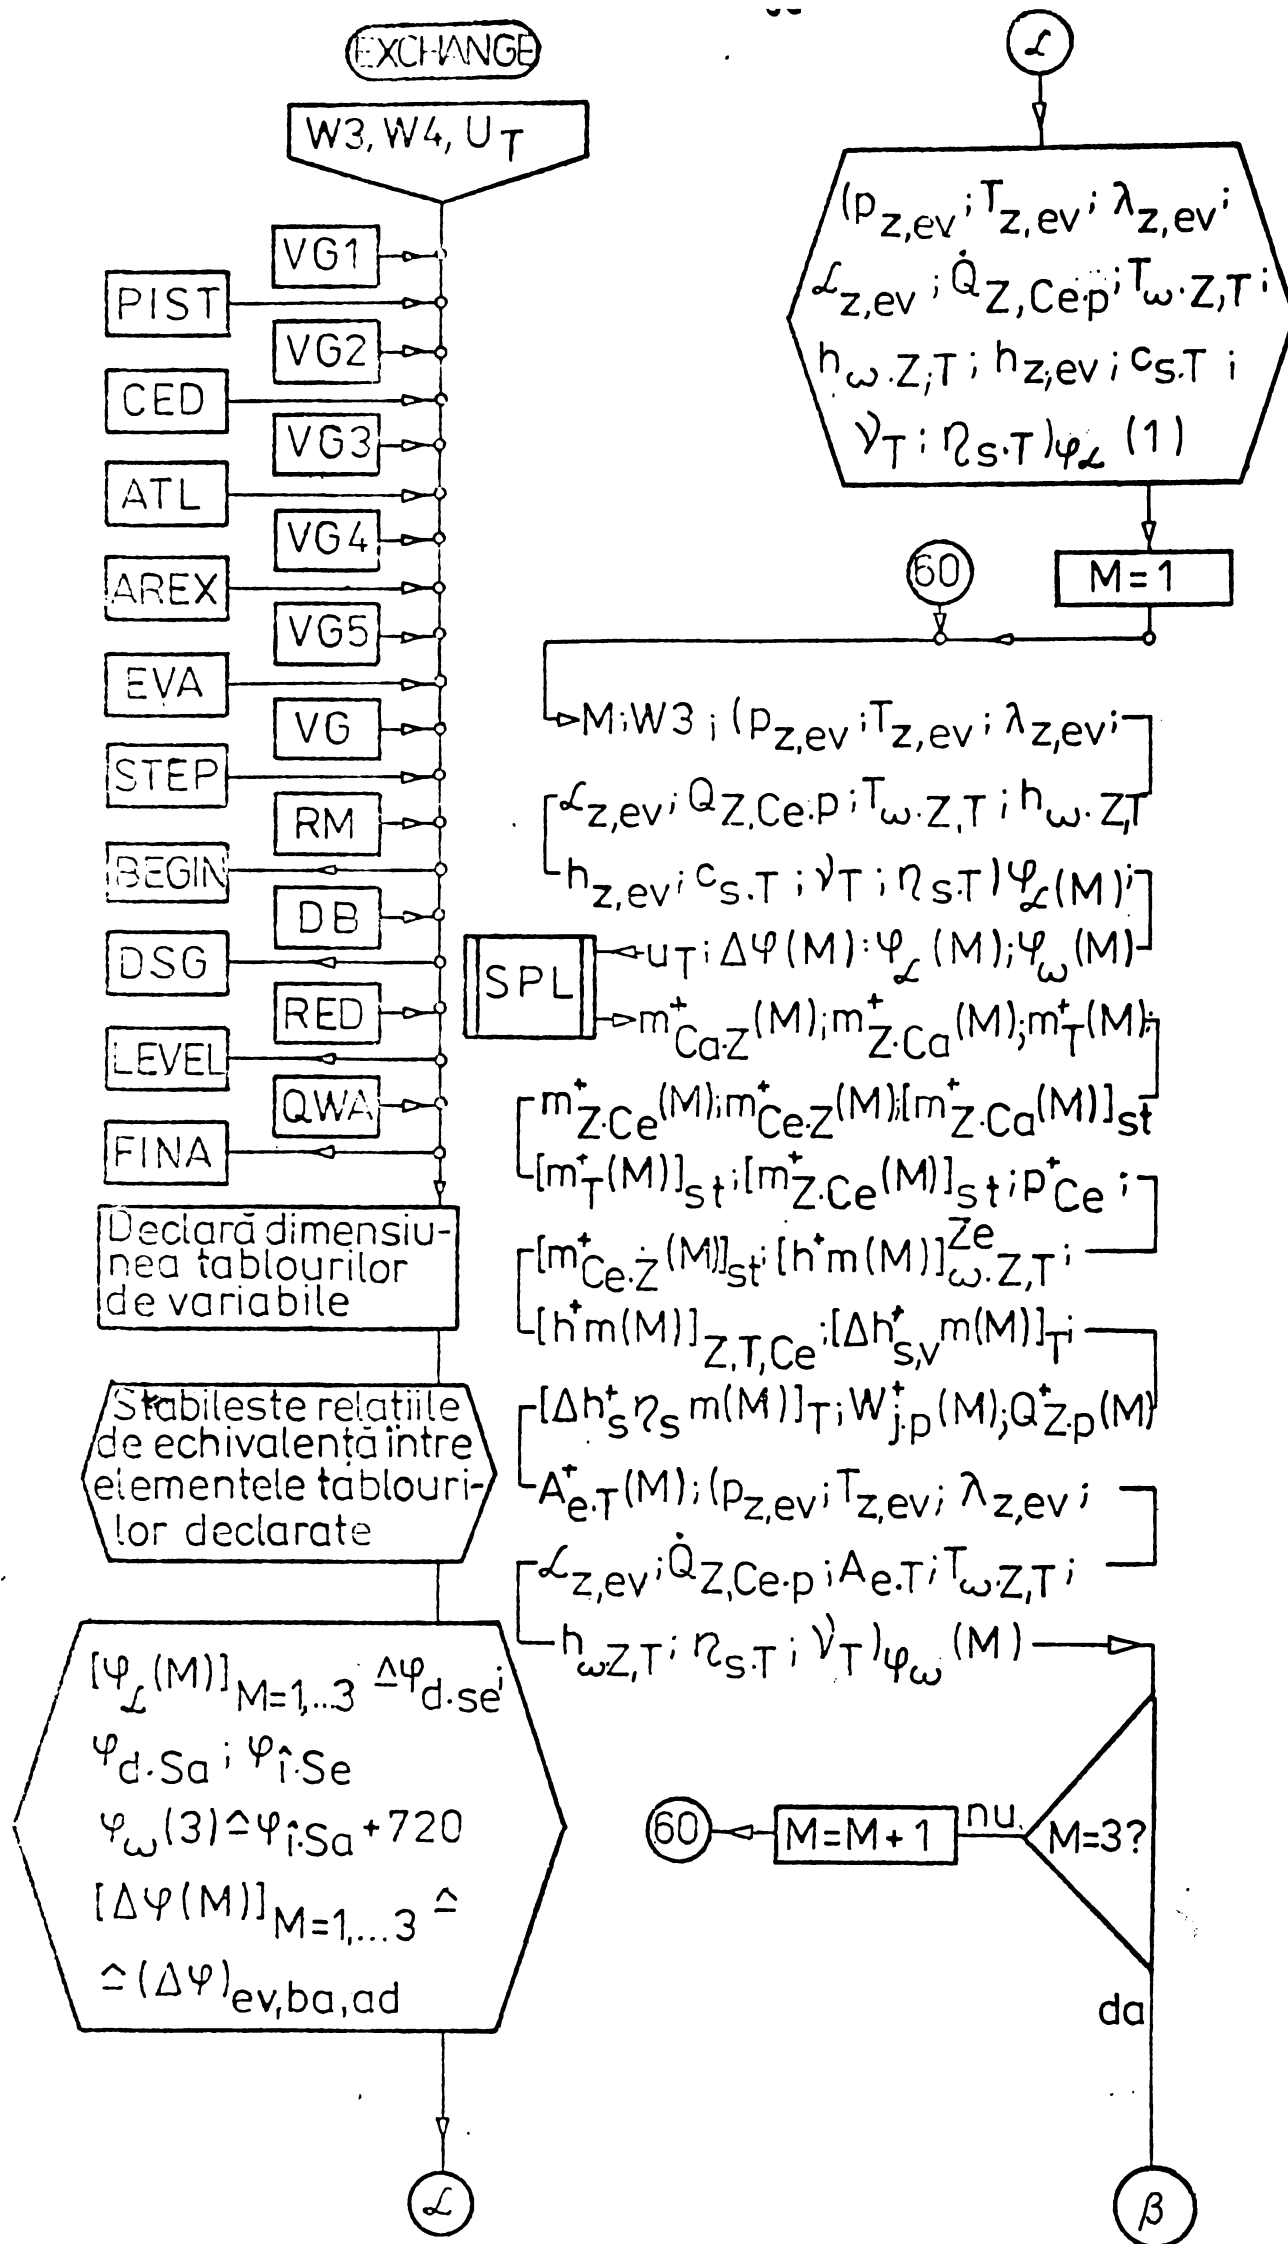 EXCHANGE
W3, W4, U_T
VG1
PIST
VG2
CED
VG3
ATL
VG4
AREX
VG5
EVA
VG
STEP
RM
BEGIN
DB
DSG
RED
LEVEL
QWA
FINA
Declară dimensiu-
nea tablourilor
de variabile
Stabileste relațiile
de echivalență între
elementele tablouri-
lor declarate
[φ_α(M)]_M=1,..3 ≙ φ_d.se;
φ_d.Sa ; φ_î.Se
φ_ω(3) ≙ φ_î.Sa + 720
[Δφ(M)]_M=1,...3 ≙
≙ (Δφ)_ev,ba,ad
α
α
(p_z,ev ; T_z,ev ; λ_z,ev ;
α_z,ev ; Q̇_Z,Ce.p ; T_ω.Z,T ;
h_ω.Z,T ; h_z,ev ; c_s.T ;
ν_T ; η_s.T)_φα (1)
M=1
60
M; W3 ; (p_z,ev ; T_z,ev ; λ_z,ev ;
α_z,ev ; Q_Z,Ce.p ; T_ω.Z,T ; h_ω.Z,T
h_z,ev ; c_s.T ; ν_T ; η_s.T)φ_α(M) ;
u_T ; Δφ(M) : φ_α(M) ; φ_ω(M)
SPL
m⁺_Ca.Z(M) ; m⁺_Z.Ca(M) ; m⁺_T(M) ;
m⁺_Z.Ce(M) ; m⁺_Ce.Z(M) ; [m⁺_Z.Ca(M)]_st
[m⁺_T(M)]_st ; [m⁺_Z.Ce(M)]_st ; p⁺_Ce ;
[m⁺_Ce.Z(M)]_st ; [h⁺m(M)]^Ze_ω.Z,T ;
[h⁺m(M)]_Z,T,Ce ; [Δh⁺_s,v m(M)]_T ;
[Δh⁺_s η_s m(M)]_T ; W⁺_j.p(M) ; Q⁺_Z.p(M)
A⁺_e.T(M) ; (p_z,ev ; T_z,ev ; λ_z,ev ;
α_z,ev ; Q̇_Z,Ce.p ; A_e.T ; T_ω.Z,T ;
h_ωZ,T ; η_s.T ; ν_T)_φω (M)
M=3?
nu
M=M+1
60
da
β